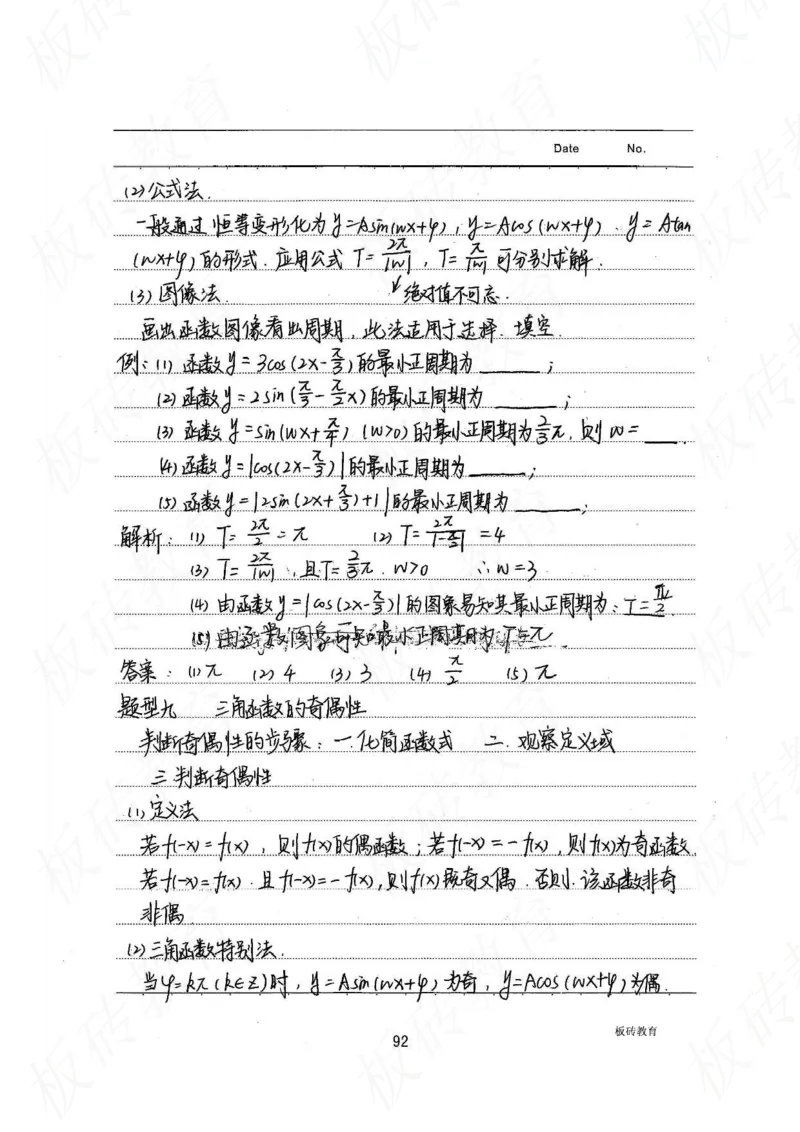 Date No.
(2)公式法.
一般通过恒等变形化为y=Asin(wx+φ), y=Acos(wx+φ). y=Atan
(wx+φ)的形式.应用公式 T=2π/|w|, T=π/|w| 可分别求解.
(3)图像法. 绝对值不可忘.
画出函数图像看出周期,此法适用于选择.填空.
例:(1)函数y=3cos(2x-π/3)的最小正周期为______;
(2)函数y=2sin(π/3-π/2x)的最小正周期为______;
(3)函数y=sin(wx+π/4)(w>0)的最小正周期为2/3π,则w=___.
(4)函数y=|cos(2x-π/3)|的最小正周期为______;
(5)函数y=|2sin(2x+π/3)+1|的最小正周期为______;
解析:(1)T=2π/2=π (2)T=2π/|-π/2|=4
(3)T=2π/|w|,且T=2/3π.w>0 ∴w=3
(4)由函数y=|cos(2x-π/3)|的图象易知其最小正周期为:T=π/2
(5)由函数图象可知最小正周期为:T=π
答案:(1)π (2)4 (3)3 (4)π/2 (5)π
题型九 三角函数的奇偶性
判断奇偶性的步骤:一.化简函数式 二.观察定义域
三判断奇偶性
(1)定义法
若f(-x)=f(x),则f(x)的偶函数;若f(-x)=-f(x),则f(x)为奇函数.
若f(-x)=f(x).且f(-x)=-f(x),则f(x)既奇又偶.否则.该函数非奇
非偶.
(2)三角函数特别法.
当φ=kπ(k∈Z)时,y=Asin(wx+φ)为奇,y=Acos(wx+φ)为偶.
板砖教育
92